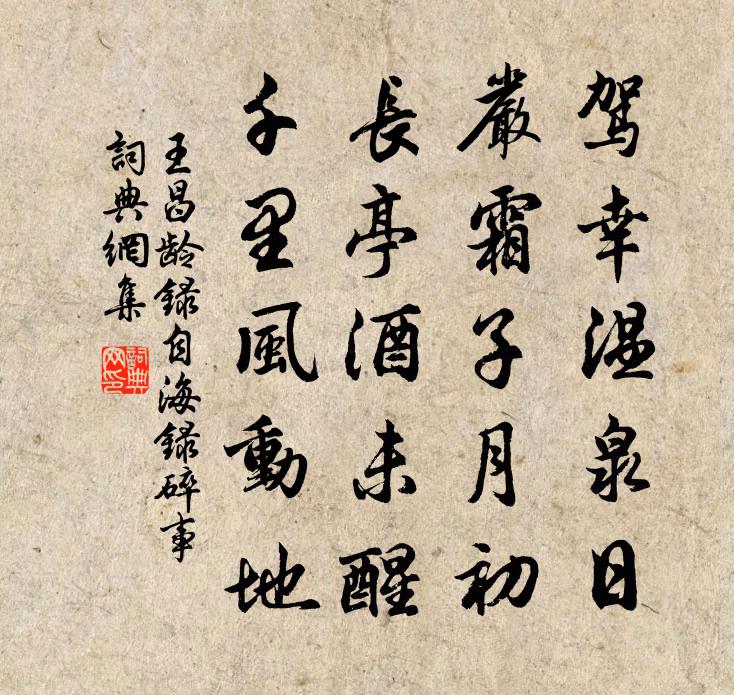 駕幸温泉日
嚴霜子月初
長亭酒未醒
千里風動地
王昌齡録自海録碎事
詞典網集
詞典
网印